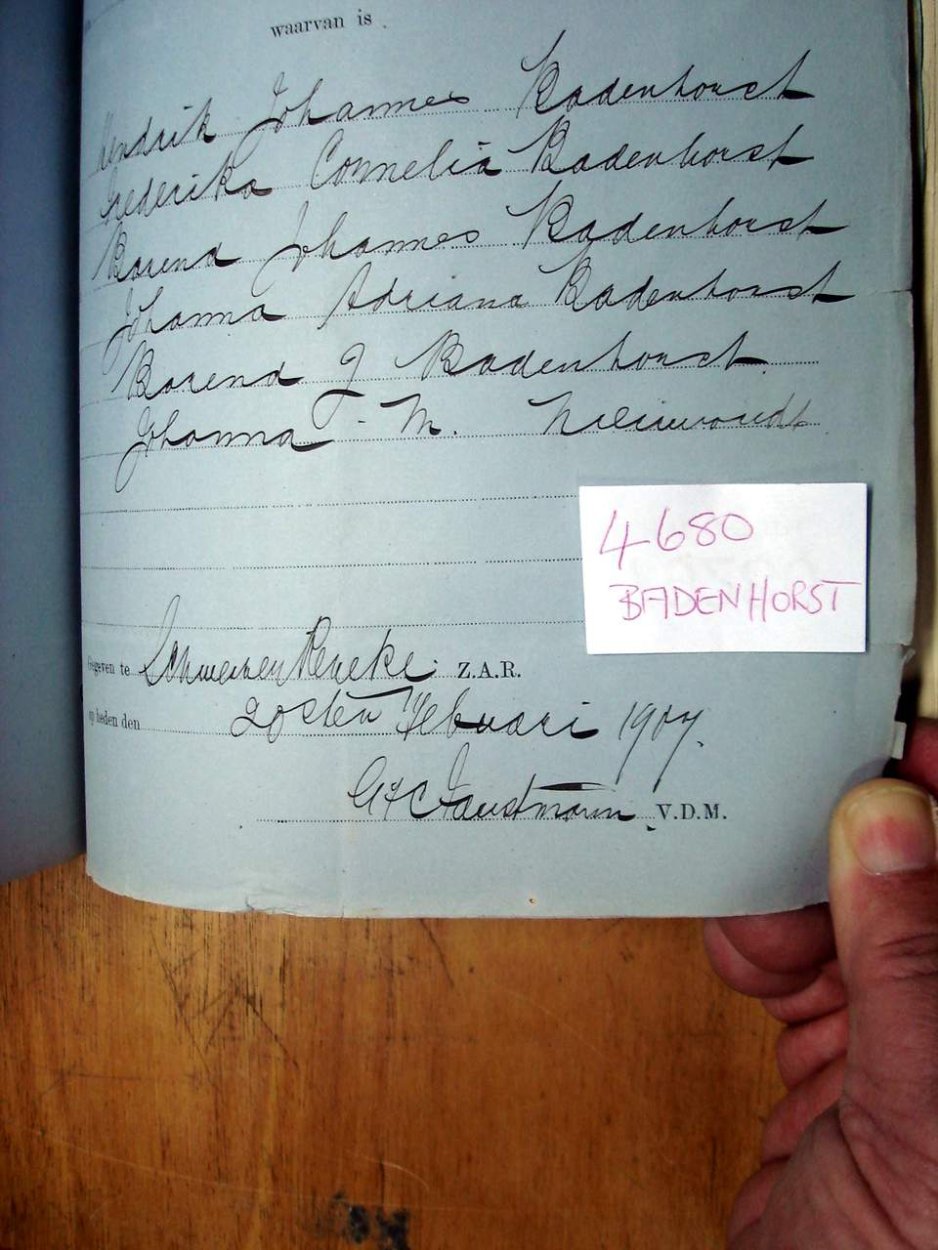 waarvan is
Hendrik Johannes Badenhorst
Frederika Cornelia Badenhorst
Barend Johannes Badenhorst
Johanna Adriana Badenhorst
Barend J Badenhorst
Johanna M. Nieuwoudt
4680
BADENHORST
Gegeven te Schweizer Reneke Z.A.R.
op heden den 20sten Februari 1904.
V.D.M.